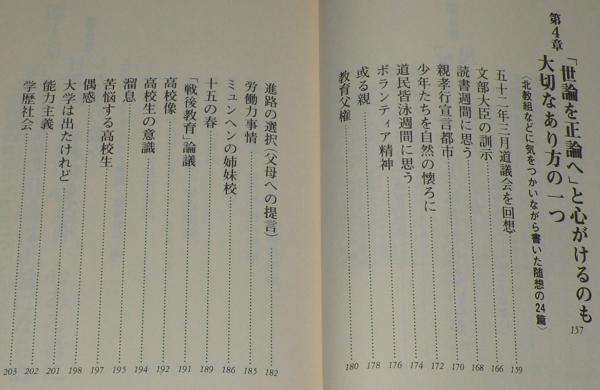 第4章
「世論を正論へ」と心がけるのも 157
大切なあり方の一つ
〈北教組などに気をつかいながら書いた随想の24篇〉
五十二年三月道議会を回想……159
文部大臣の訓示……166
読書週間に思う……168
親孝行宣言都市……170
少年たちを自然の懐ろに……172
道民皆泳週間に思う……174
ボランティア精神……176
或る親……178
教育父権……180
進路の選択(父母への提言)……182
労働力事情……185
ミュンヘンの姉妹校……186
十五の春……189
「戦後教育」論議……191
高校像……192
高校生の意識……194
溜息……195
苦悩する高校生……197
偶感……198
大学は出たけれど……201
能力主義……202
学歴社会……203